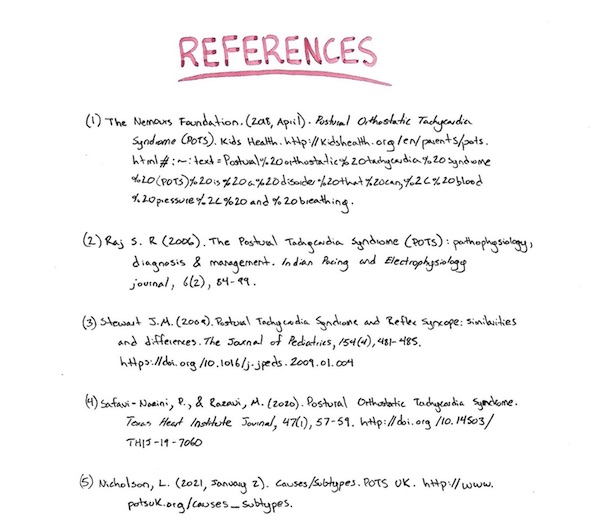 REFERENCES
(1) The Nemours Foundation. (2018, April). Postural Orthostatic Tachycardia
Syndrome (POTS). Kids Health. http://kidshealth.org/en/parents/pots.
html#:~:text=Postural%20orthostatic%20tachycardia%20syndrome
%20(POTS)%20is%20a%20disorder%20that%20can,%2C%20blood
%20pressure%2C%20and%20breathing.
(2) Raj S. R (2006). The Postural Tachycardia Syndrome (POTS): pathophysiology,
diagnosis & management. Indian Pacing and Electrophysiology
journal, 6(2), 84-99.
(3) Stewart J.M. (2009). Postural Tachycardia Syndrome and Reflex Syncope: similarities
and differences. The Journal of Pediatrics, 154(4), 481-485.
https://doi.org/10.1016/j.jpeds.2009.01.004
(4) Safavi-Naeini, P., & Razavi, M. (2020). Postural Orthostatic Tachycardia Syndrome.
Texas Heart Institute Journal, 47(1), 57-59. http://doi.org/10.14503/
THIJ-19-7060
(5) Nicholson, L. (2021, January 2). Causes/Subtypes. POTS UK. http://www.
potsuk.org/causes_subtypes.